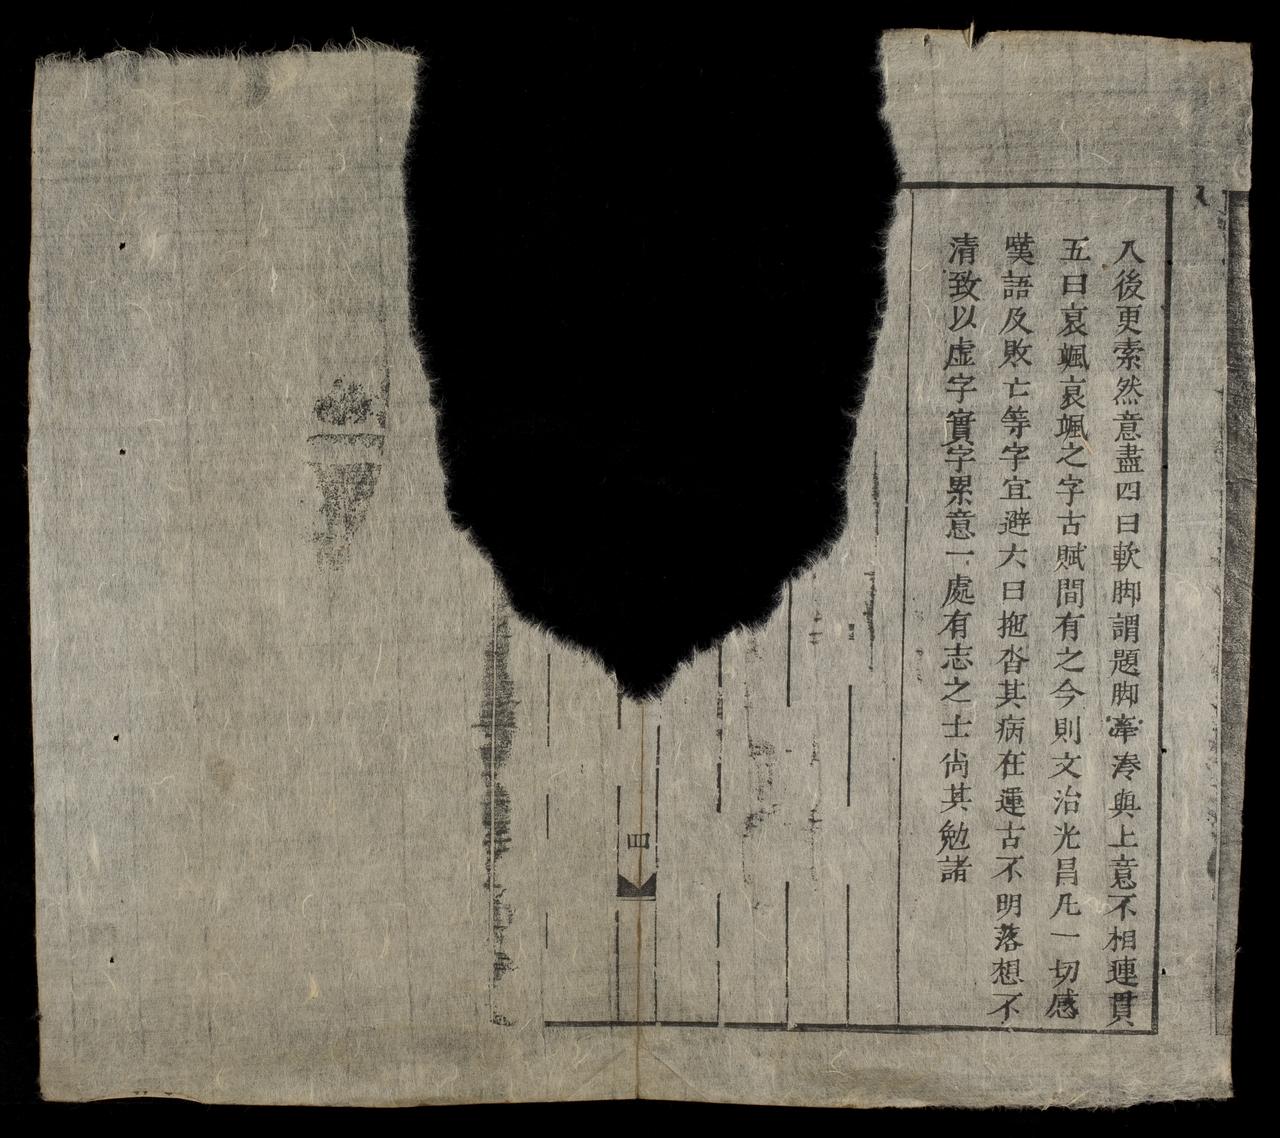 八後更索然意盡四曰軟脚謂題脚牽湊與上意不相連貫
五曰哀颯哀颯之字古賦間有之今則文治光昌凡一切感
嘆語及敗亡等字宜避六曰拖沓其病在運古不明落想不
清致以虚字實字累意一處有志之士尚其勉諸
四